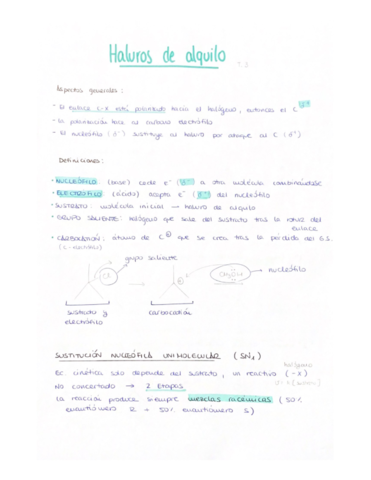 Haluros de alquilo
Aspectos generales:
· El enlace C-X está polarizado hacia el halógeno, entonces el C δ+
· La polarización hace al carbono electrófilo
· El nucleófilo (δ-) sustituye al haluro por ataque al C (δ+)
Definiciones:
· NUCLEÓFILO (base) cede e- (δ-) a otra molécula combinándose
· ELECTRÓFILO (ácido) acepta e- (δ-) del nucleófilo
· SUSTRATO molécula inicial → haluro de alquilo
· GRUPO SALIENTE: halógeno que sale del sustrato tras la rotura del
enlace
· CARBOCATIÓN: átomo de C⊕ que se crea tras la pérdida del G.S.
grupo saliente
nucleófilo
sustrato y
electrófilo
carbocatión
SUSTITUCIÓN NUCLEÓFILA UNIMOLECULAR (SN1)
Ec. cinética solo depende del sustrato, un reactivo (-X)
No concertado → 2 etapas
La reacción produce siempre mezclas racémicas (50%
enantiómero R - 50% enantiómero S)